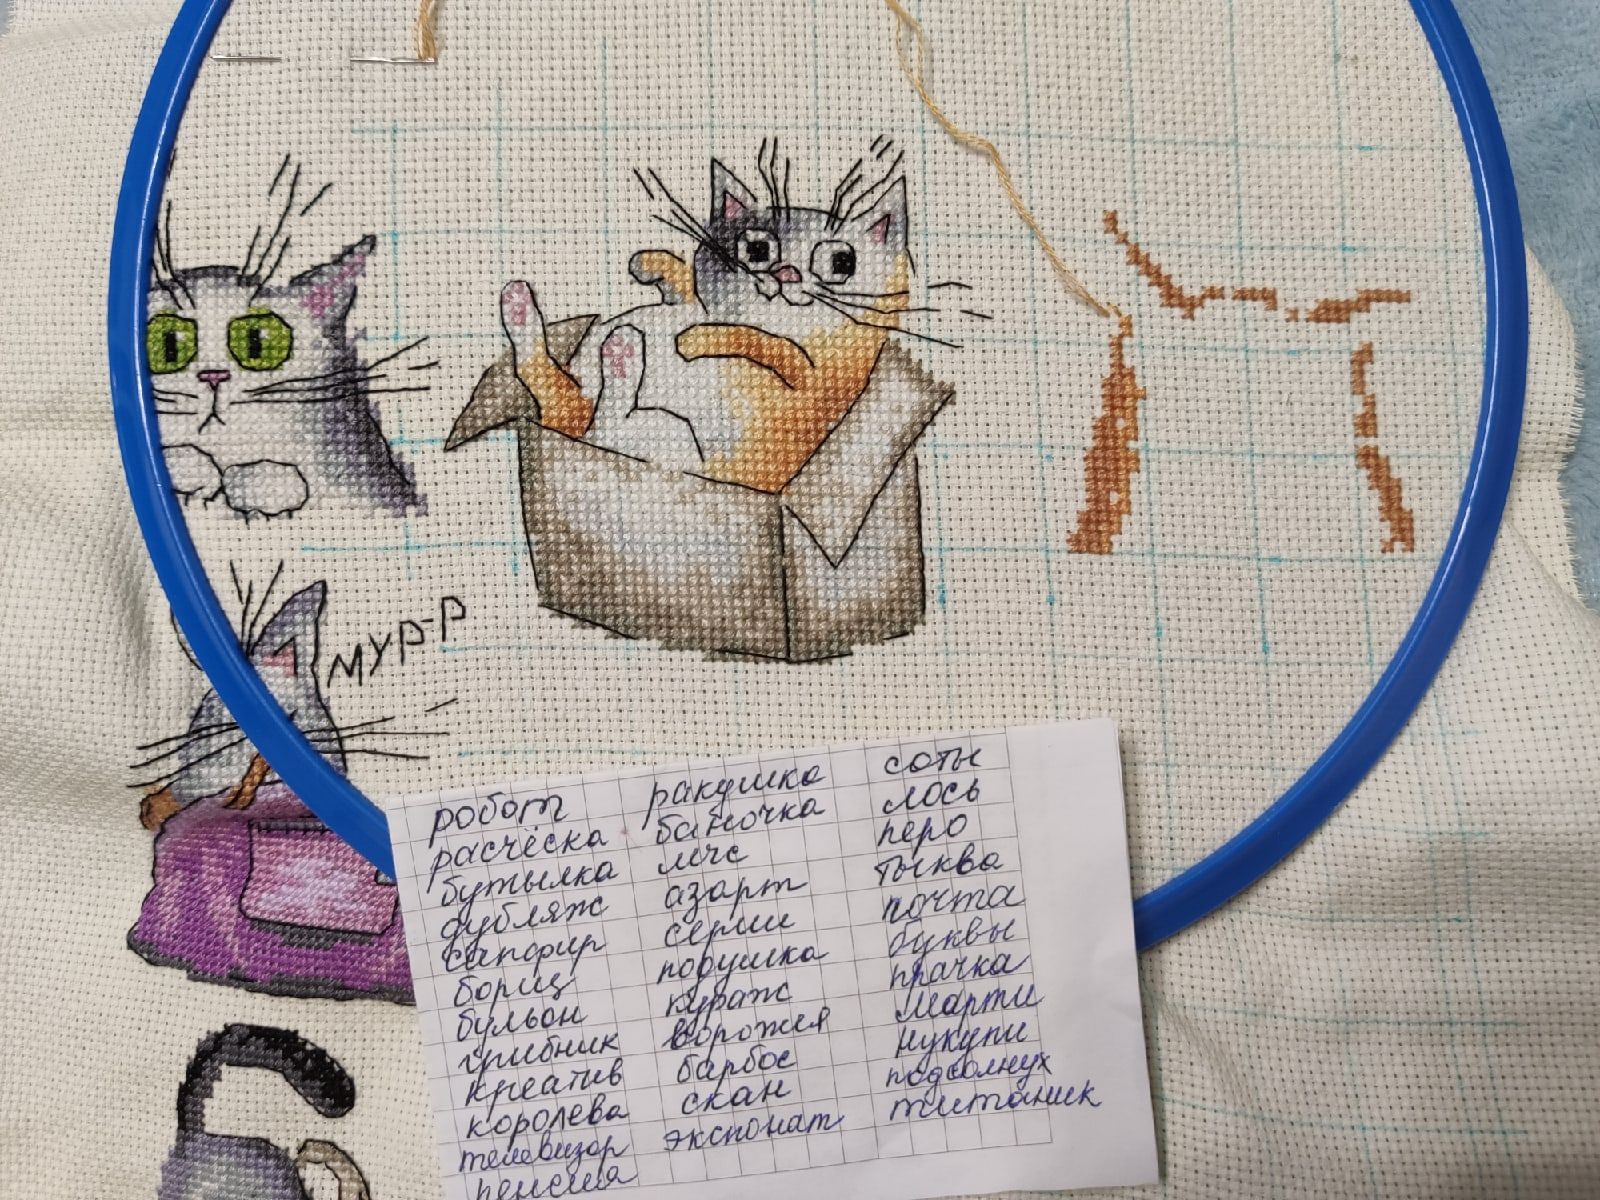 МУР-Р
робот
расчёска
бутылка
дубляж
сапфир
борщ
бульон
грибник
креатив
королева
телевизор
пенсия
ракушка
баночка
меч
азарт
серии
подушка
кураж
ворожея
барбос
скан
экспонат
соты
лось
перо
тыква
почта
буквы
прачка
Марти
подсолнух
титаник